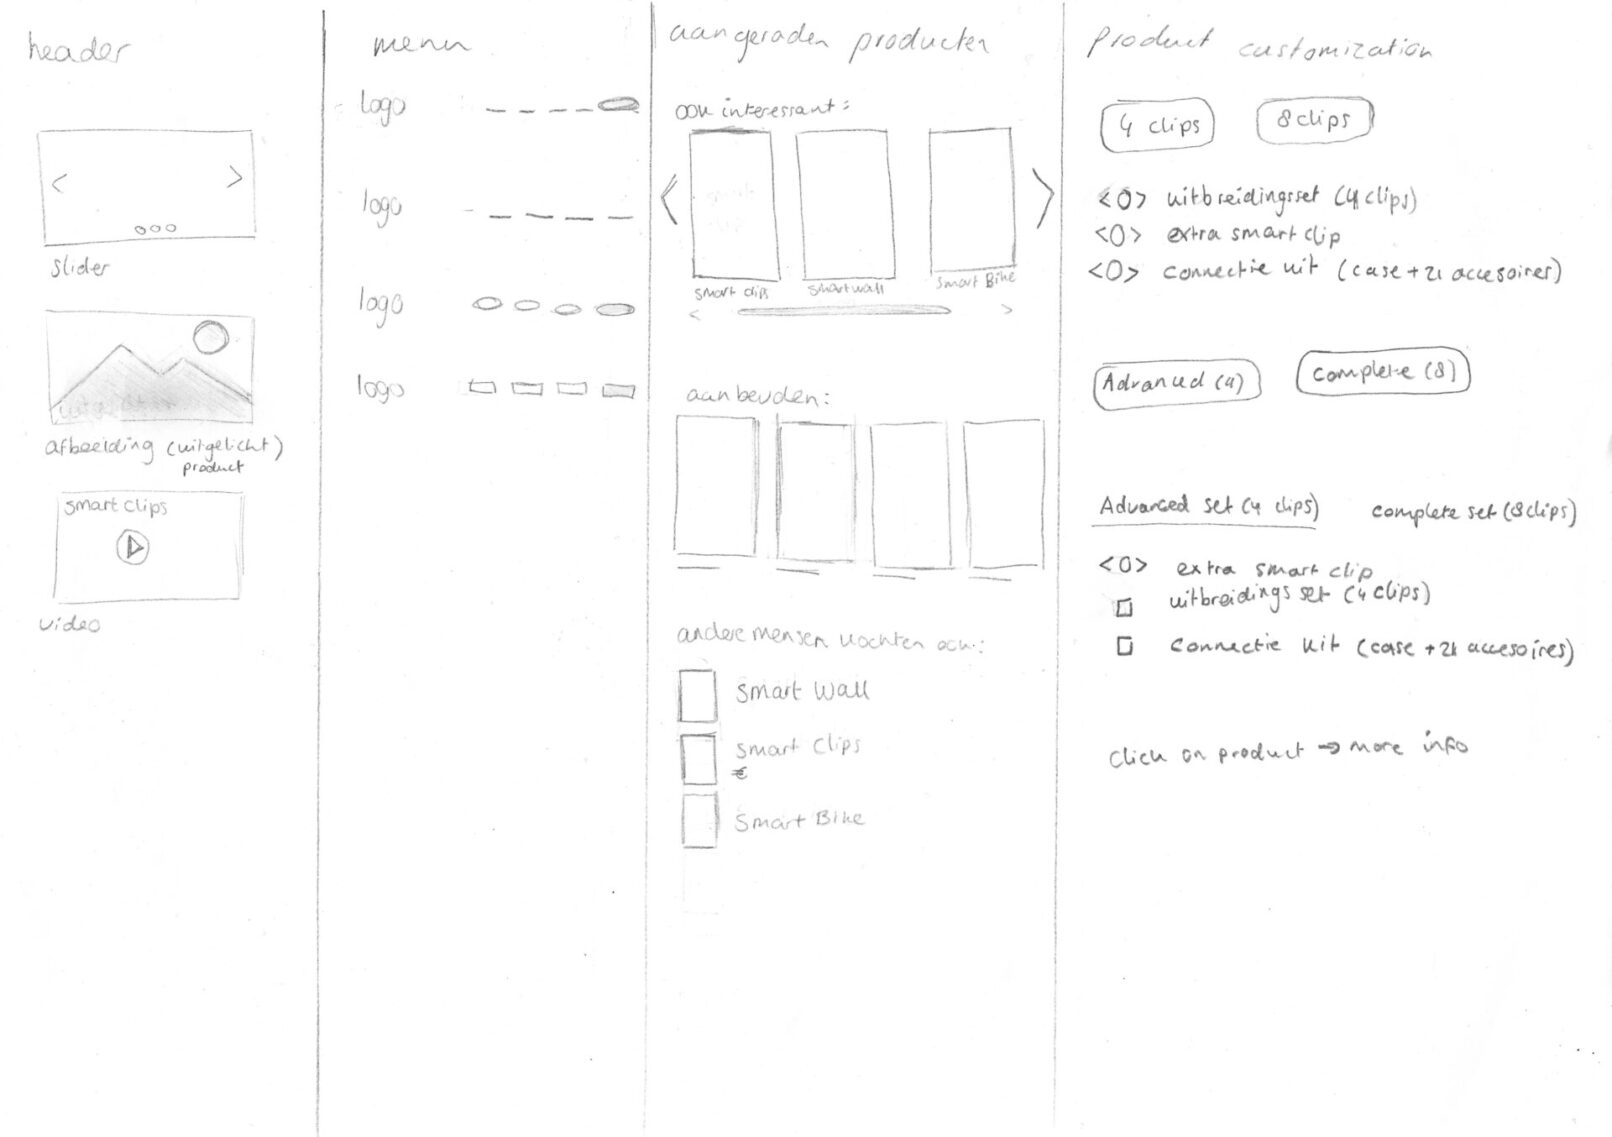 header
slider
afbeelding (uitgelicht)
product
smart clips
video
menu
logo
logo
logo
logo
aangeraden producten
ook interessant:
smart clips
smart wall
smart Bike
aanbevolen:
andere mensen kochten ook:
smart wall
smart clips
€
smart Bike
product customization
4 clips
8 clips
<0> uitbreidingsset (4 clips)
<0> extra smart clip
<0> connectie kit (case + 21 accesoires)
Advanced (4)
complete (8)
Advanced set (4 clips)
complete set (8 clips)
<0> extra smart clip
uitbreidings set (4 clips)
connectie kit (case + 21 accesoires)
click on product → more info